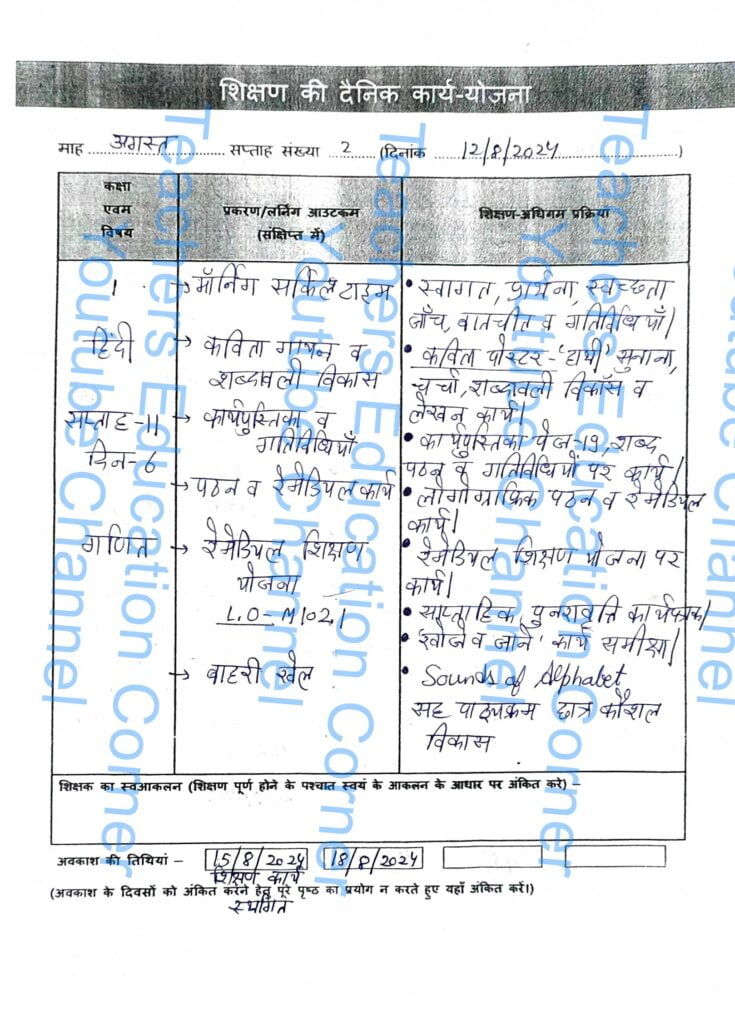 शिक्षण की दैनिक कार्य-योजना
माह ....अगस्त.... सप्ताह संख्या ..2.. (दिनांक ....12/8/2024....)
कक्षा
एवम
विषय
प्रकरण/लर्निंग आउटकम
(संक्षिप्त में)
शिक्षण-अधिगम प्रक्रिया
1
हिंदी
सप्ताह-11
दिन-6
गणित
→ मॉर्निंग सर्किल टाइम
→ कविता गायन व
शब्दावली विकास
→ कार्यपुस्तिका व
गतिविधियाँ
→ पठन व रेमेडियल कार्य
→ रेमेडियल शिक्षण
योजना
L.O-M102.1
→ बाहरी खेल
• स्वागत, प्रार्थना, स्वच्छता
जाँच, बातचीत व गतिविधियाँ।
• कविता पोस्टर-'हाथी' सुनाना,
चर्चा, शब्दावली विकास व
लेखन कार्य।
• कार्यपुस्तिका पेज-19, शब्द
पठन व गतिविधियों पर कार्य।
• लोगोग्राफिक पठन व रेमेडियल
कार्य।
• रेमेडियल शिक्षण योजना पर
कार्य।
• साप्ताहिक पुनरावृत्ति कार्यपत्रक।
• 'खोजें व जानें' कार्य समीक्षा।
• Sounds of Alphabet
सह पाठ्यक्रम छात्र कौशल
विकास
शिक्षक का स्वआकलन (शिक्षण पूर्ण होने के पश्चात स्वयं के आकलन के आधार पर अंकित करे) –
अवकाश की तिथियां – 15/8/2024 18/8/2024
शिक्षण कार्य
(अवकाश के दिवसों को अंकित करने हेतु पूरे पृष्ठ का प्रयोग न करते हुए यहाँ अंकित करें।)
स्थगित
Teachers Education Corner
Youtube Channel
Teachers Education Corner
Youtube Channel
Teachers Education Corner
Youtube Channel